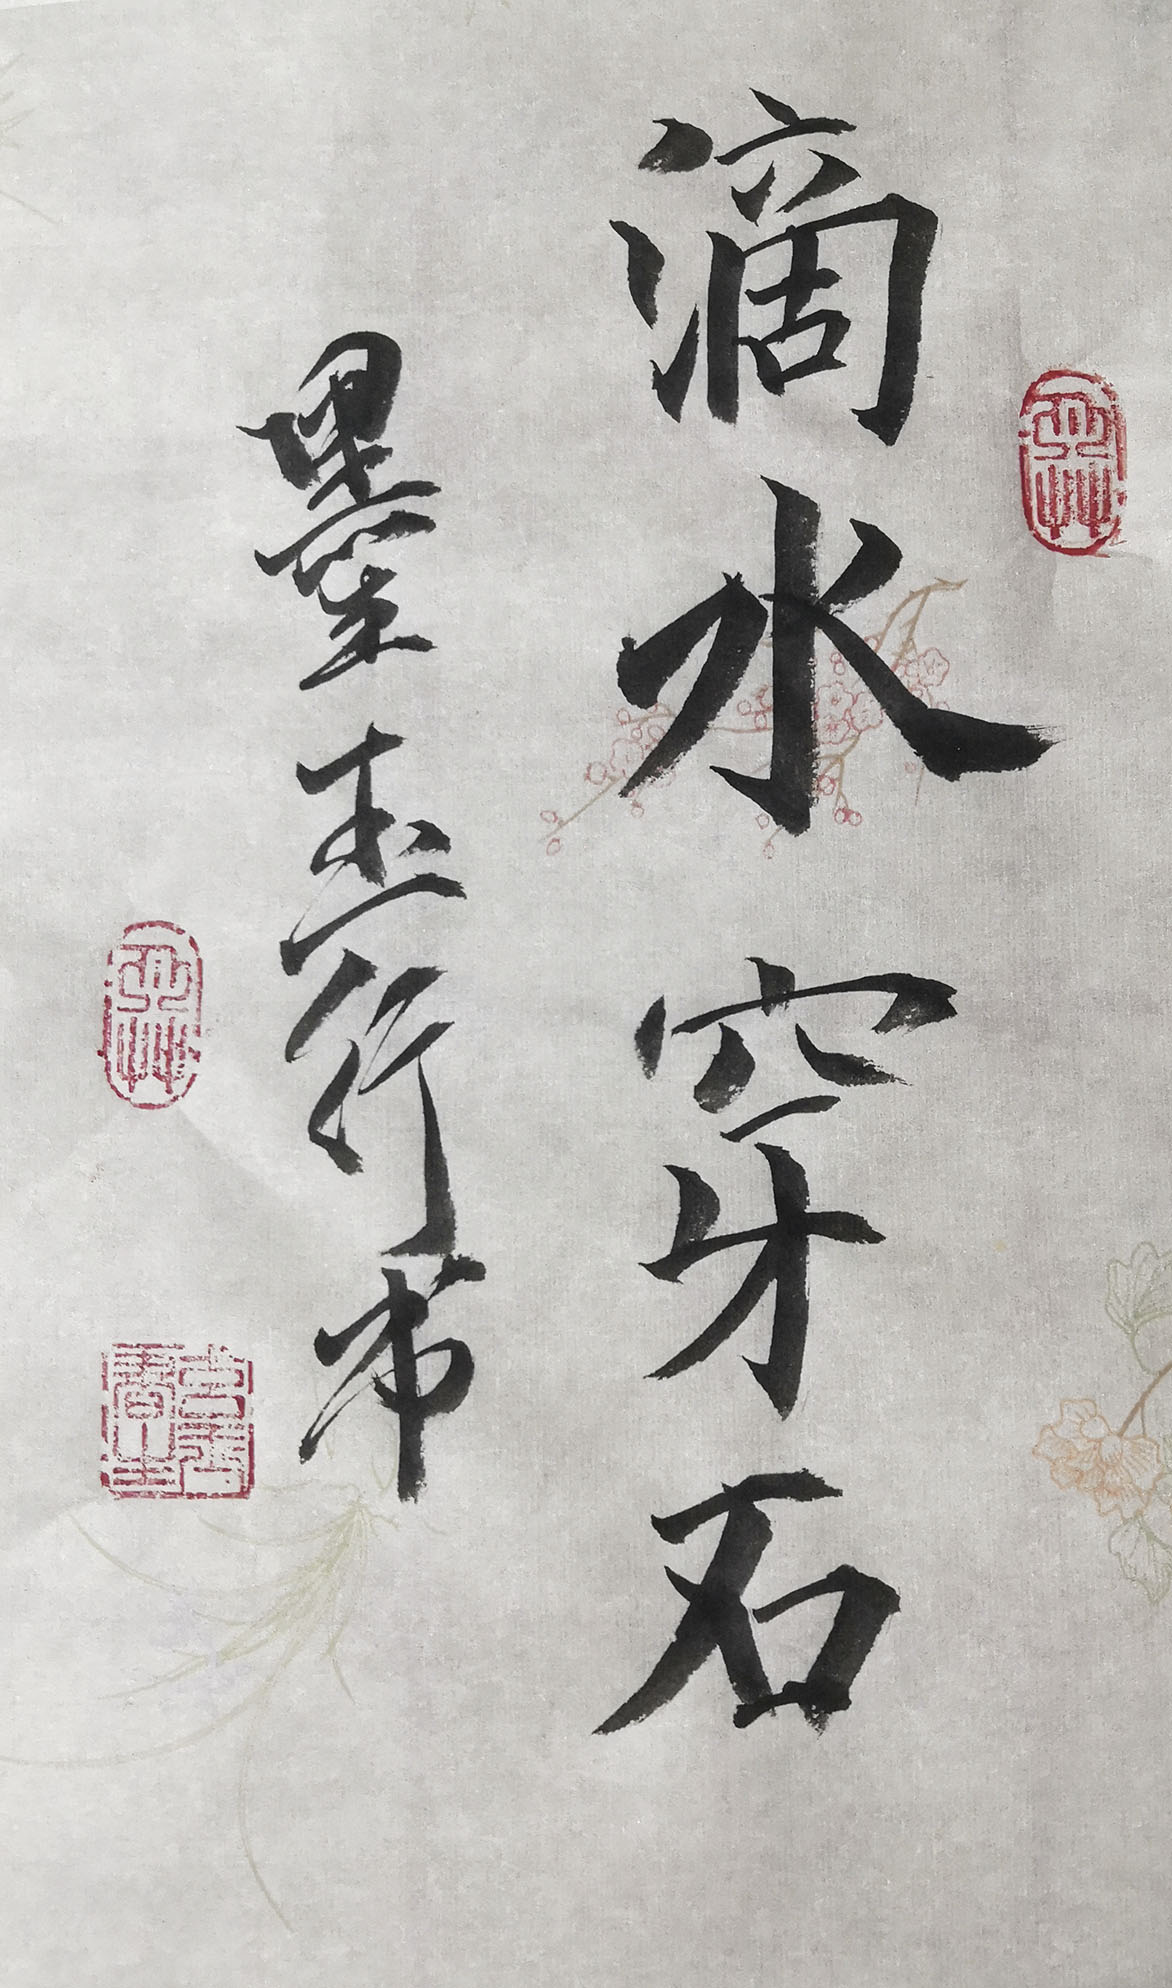 滴水穿石
墨堂玉行书